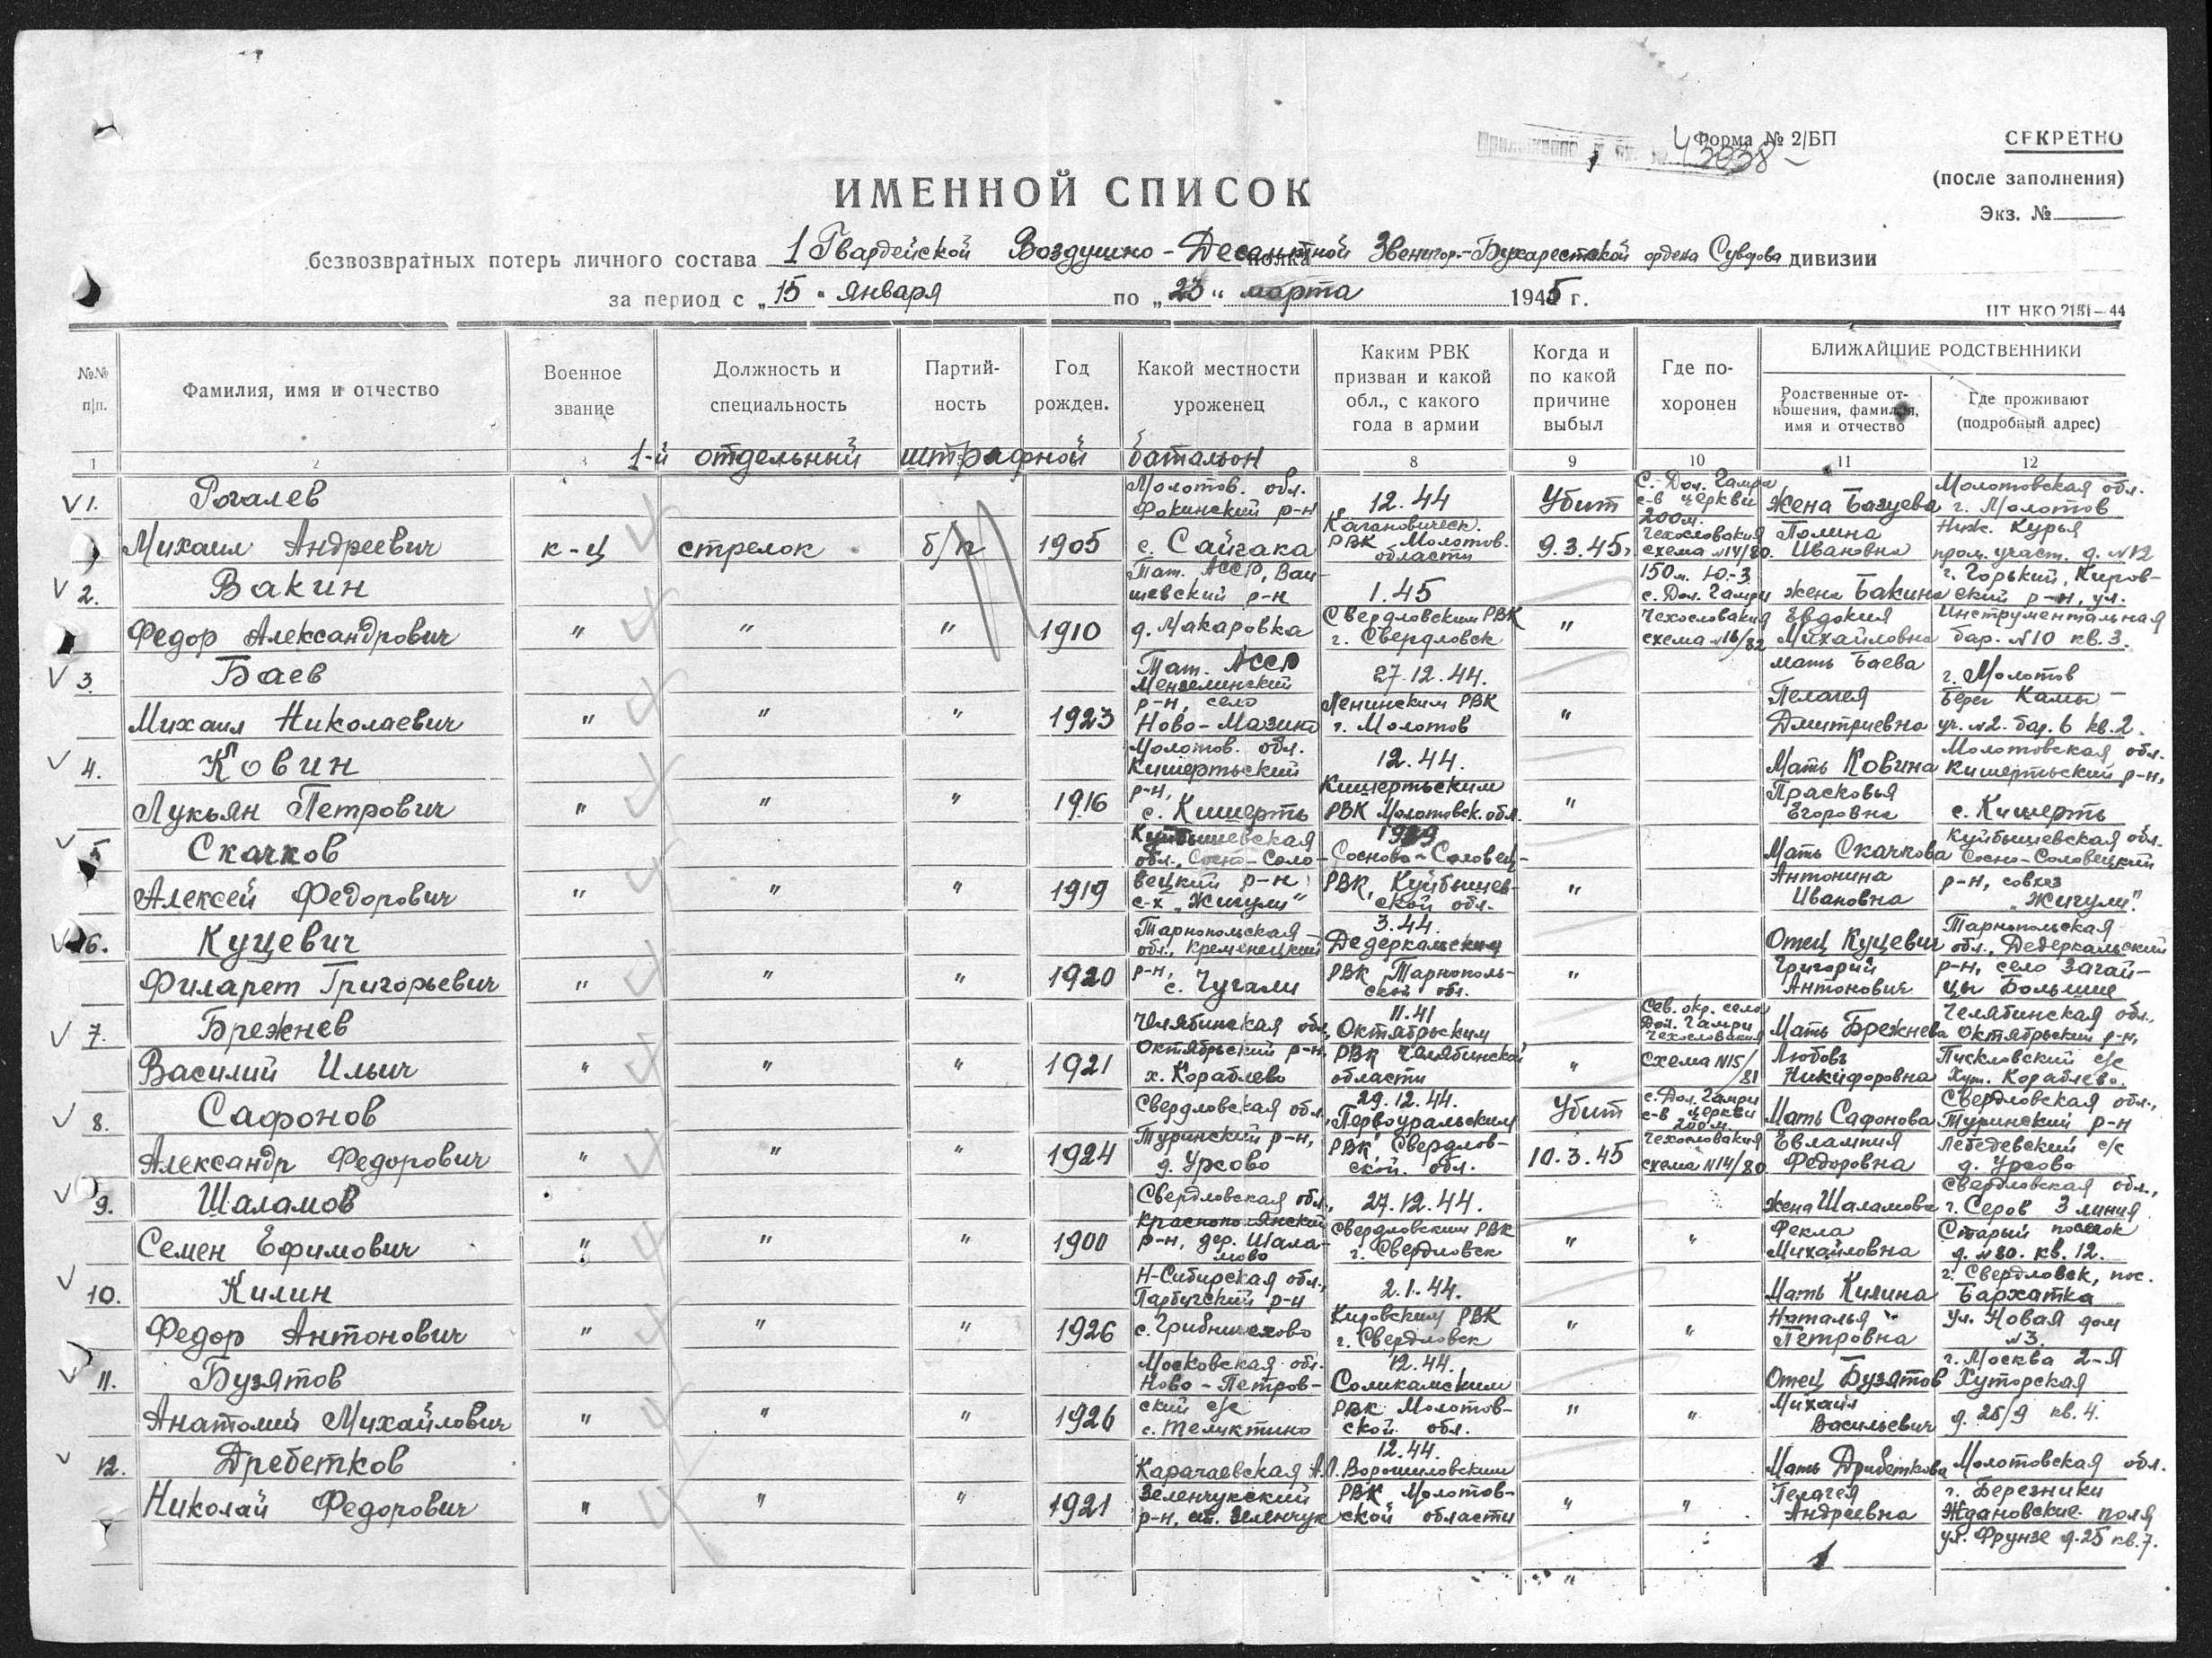 Форма № 2/БП
43938
СЕКРЕТНО
(после заполнения)
Экз. №
ИМЕННОЙ СПИСОК
безвозвратных потерь личного состава 1 Гвардейской Воздушно-Десантной Звенигор.-Бухарестской ордена Суворова дивизии
за период с „15" января по „23" марта 1945 г.
ЦТ НКО 2151—44
№№ п/п.
Фамилия, имя и отчество
Военное звание
Должность и специальность
Партий-ность
Год рожден.
Какой местности уроженец
Каким РВК призван и какой обл., с какого года в армии
Когда и по какой причине выбыл
Где по-хоронен
БЛИЖАЙШИЕ РОДСТВЕННИКИ
Родственные от-ношения, фамилия, имя и отчество
Где проживают (подробный адрес)
1-й отдельный штрафной батальон
1 2 3 8 9 10 11 12
1. Рогалев
Михаил Андреевич
к-ц стрелок б/п 1905
Молотов. обл.
Фокинский р-н
с. Сайгака
12.44
Кагановическ.
РВК Молотов.
области
Убит
9.3.45
с. Дол. Гамри
с-в церкви
200м.
Чехословакия
схема №14/80
Жена Багуева
Полина
Ивановна
Молотовская обл.
г. Молотов
Ниж. Курья
пром. участ. д. №12
2. Вакин
Федор Александрович
" " " 1910
Тат. АССР,
шевский р-н
д. Макаровка
1.45
Свердловским РВК
г. Свердловск
"
150м. Ю.-З.
с. Дол. Гамри
Чехословакия
схема №16/82
жена Бакина
Евдокия
Михайловна
г. Горький, Киров-
ский р-н, ул.
Инструментальная
бар. №10 кв. 3.
3. Баев
Михаил Николаевич
" " " 1923
Тат. АССР
Мензелинский
р-н, село
Ново-Мазино
27.12.44.
Ленинским РВК
г. Молотов
"
мать Баева
Пелагея
Дмитриевна
г. Молотов
Берег Камы
уч. №2. бар. 6 кв. 2.
4. Ковин
Лукьян Петрович
" " " 1916
Молотов. обл.
Кишертьский
р-н,
с. Кишерть
12.44.
Кишертьским
РВК Молотовск. обл.
"
Мать Ковина
Прасковья
Егоровна
Молотовская обл.
Кишертьский р-н,
с. Кишерть
5 Скачков
Алексей Федорович
" " " 1919
Куйбышевская
обл., Сосно-Соло-
вецкий р-н
с-х „Жигули"
1939
Сосново-Соловец-
РВК, Куйбышев-
ской обл.
"
Мать Скачкова
Антонина
Ивановна
Куйбышевская обл.
Сосно-Соловецкий
р-н, совхоз
„Жигули".
6. Куцевич
Филарет Григорьевич
" " " 1920
Тарнопольская
обл., Кременецкий
р-н,
с. Чугали
3.44.
Дедеркальским
РВК Тарнополь-
ской обл.
"
Отец Куцевич
Григорий
Антонович
Тарнопольская
обл., Дедеркальский
р-н, село Загай-
цы Большие
7. Брежнев
Василий Ильич
" " " 1921
Челябинская обл.
Октябрьский р-н,
х. Кораблево
11.41
Октябрьским
РВК Челябинской
области
"
Сев. окр. село
Дол. Гамри
Чехословакия
Схема №15/81
Мать Брежнева
Любовь
Никифоровна
Челябинская обл.,
Октябрьский р-н,
Пискловский с/с
Хут. Кораблево.
8. Сафонов
Александр Федорович
" " " 1924
Свердловская обл.
Туринский р-н,
д. Урсово
29.12.44.
Первоуральским
РВК, Свердлов-
ской обл.
Убит
10.3.45
с. Дол. Гамри
с-в церкви
200м
Чехословакия
схема №14/80
Мать Сафонова
Евлампия
Федоровна
Свердловская обл.,
Туринский р-н
Лебедевский с/с
д. Урсово
9. Шаламов
Семен Ефимович
" " " 1900
Свердловская обл.,
Краснополянский
р-н, дер. Шала-
мово
27.12.44.
Свердловским РВК
г. Свердловск
" "
Жена Шаламова
Фекла
Михайловна
Свердловская обл.,
г. Серов 3 линия
Старый поселок
д. №80. кв. 12.
10. Килин
Федор Антонович
" " " 1926
Н-Сибирская обл.,
Парбигский р-н
с.
2.1.44.
Кировским РВК
г. Свердловск
" "
Мать Килина
Наталья
Петровна
г. Свердловск, пос.
Бархатка
Ул. Новая дом
№3.
11. Бузятов
Анатолий Михайлович
" " " 1926
Московская обл.
Ново-Петров-
ский с/с
с. Теликтино
12.44.
Соликамским
РВК Молотов-
ской обл.
" "
Отец Бузятов
Михаил
Васильевич
г. Москва 2-я
Хуторская
д. 25/9 кв. 4.
12. Дребетков
Николай Федорович
" " " 1921
Карачаевская А.О.
Зеленчукский
р-н, ст. Зеленчук
12.44.
Ворошиловским
РВК Молотов-
ской области
" "
Мать Дрибеткова
Пелагея
Андреевна
Молотовская обл.
г. Березники
Ждановские поля
ул. Фрунзе д. 25 кв. 7.